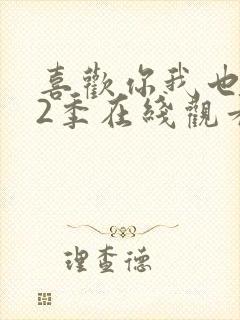 喜歡你我也
2季在綫觀
理查德